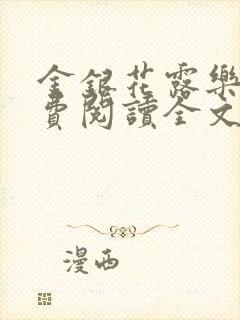 金銀花露樂
費閱讀全文
漫西